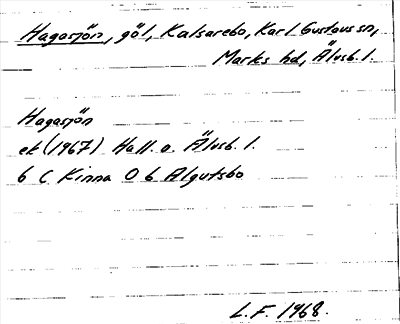 Hagasjön, göl, Kalsarebo, Karl Gustavs sn,
Marks hd, Älvsb. l.
Hagasjön
ek (1967) Hall. o. Älvsb. l.
6 C Kinna O 6 Algutsbo
L.F. 1968.